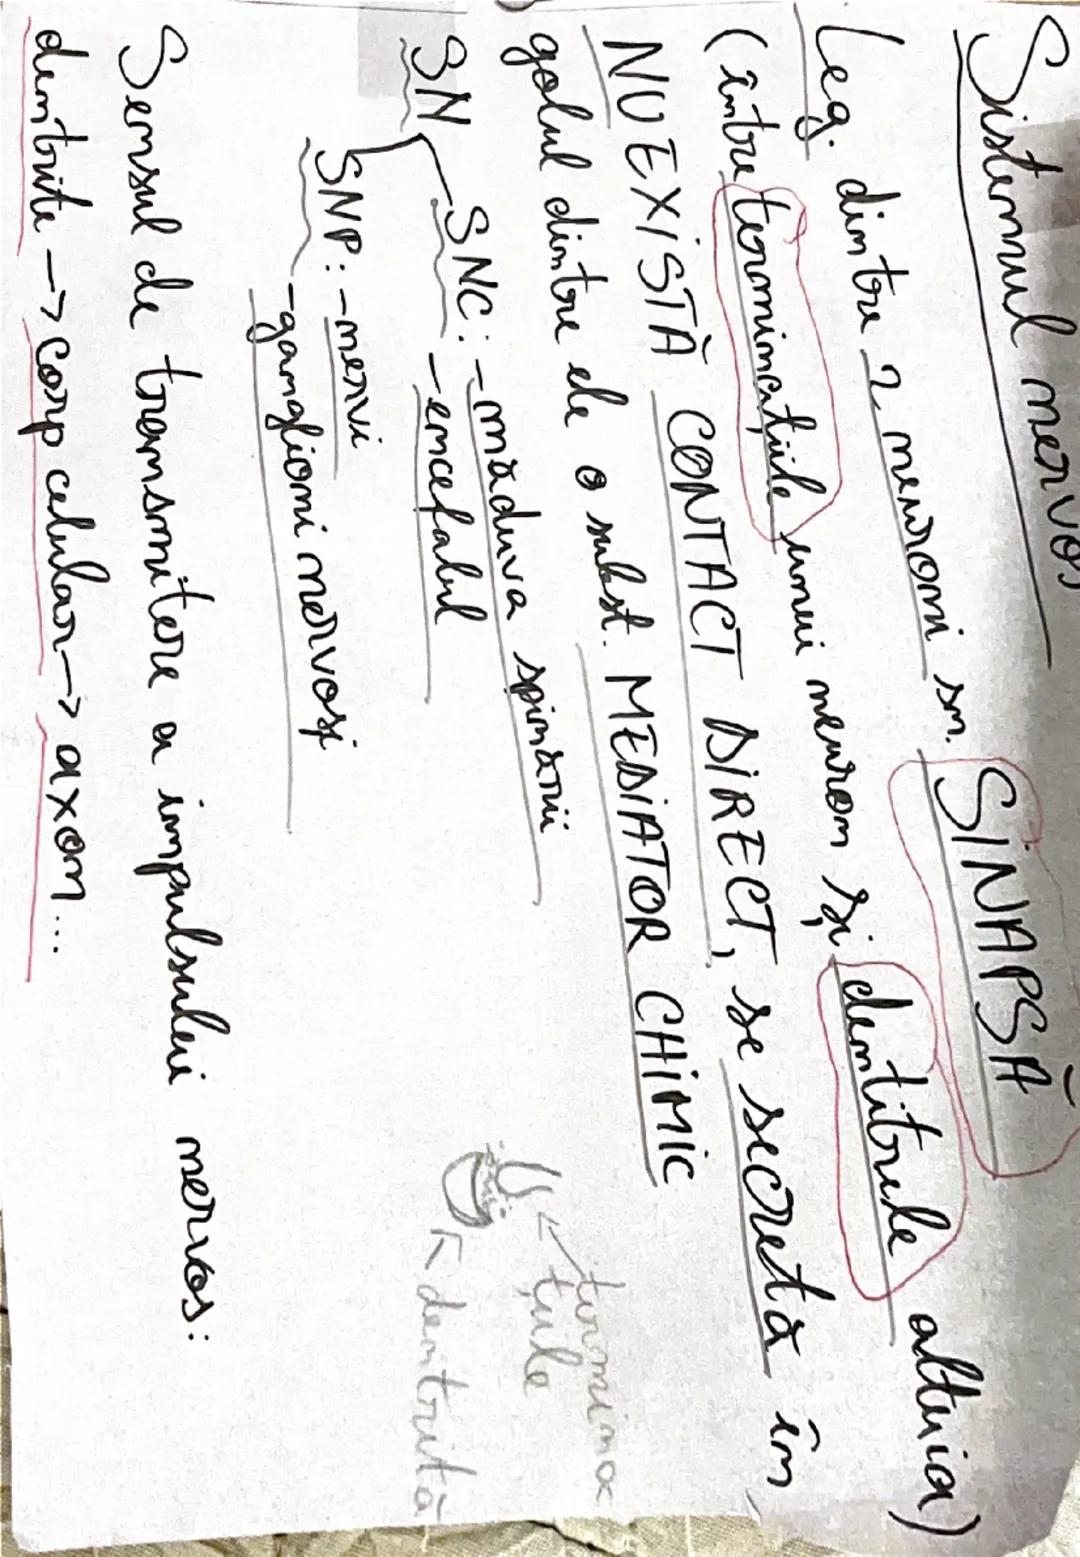 Sistemul nervos
Leg. dintre 2 neuroni sn. SINAPSĂ
(între terminațiile unui neuron și dentitrele altuia)
NU EXISTĂ CONTACT DIRECT, se secretă în
golul dintre ele o subst. MEDIATOR CHIMIC
SN
SNC: -măduva spinării
-encefalul
SNP: -nervi
-ganglioni nervoși
termina
țiile
dentrită
Sensul de transmitere a impulsului nervos:
dentrite -> corp celular -> axon...